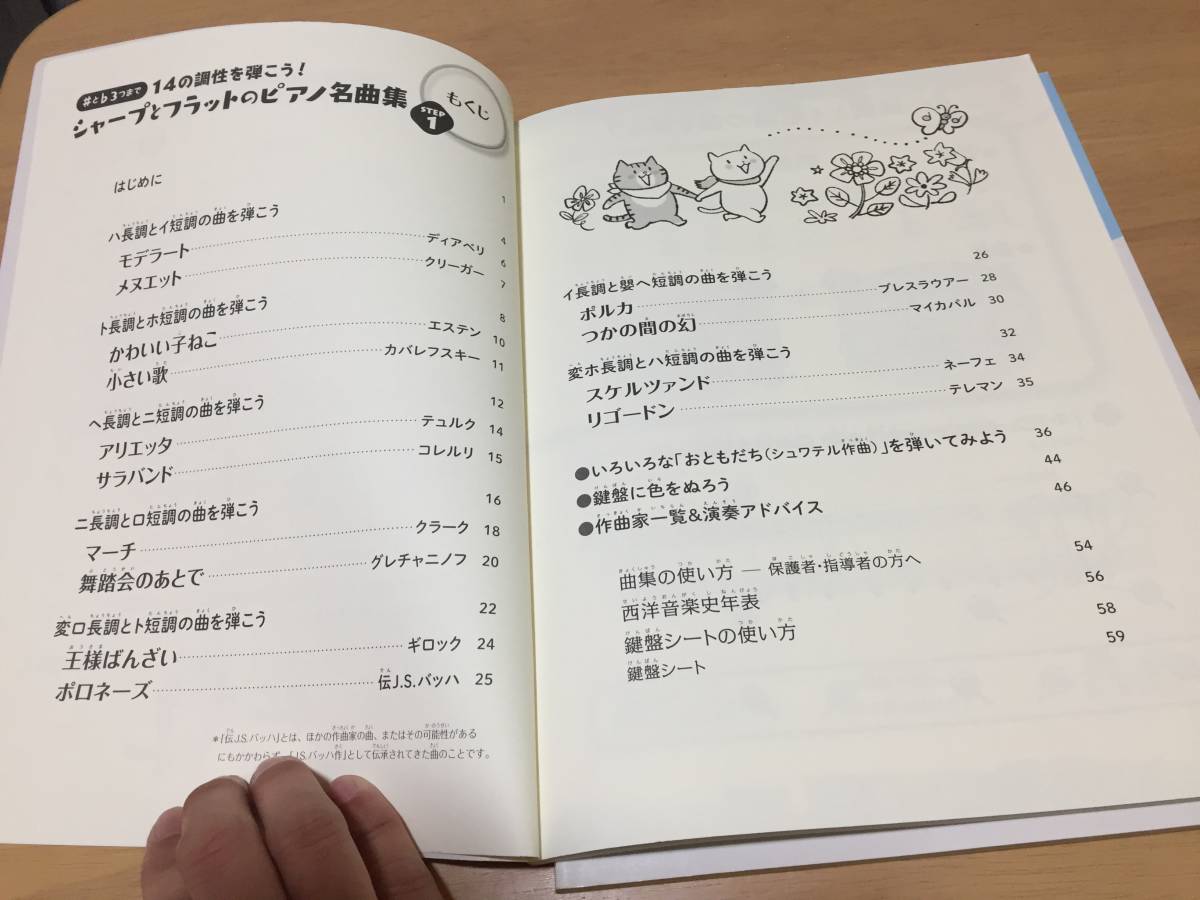 #と♭3つまで 14の調性を弾こう!
シャープとフラットのピアノ名曲集 STEP 1
もくじ
はじめに 1
ハ長調とイ短調の曲を弾こう 4
モデラート ディアベリ 6
メヌエット クリーガー 7
ト長調とホ短調の曲を弾こう 8
かわいい子ねこ エステン 10
小さい歌 カバレフスキー 11
ヘ長調とニ短調の曲を弾こう 12
アリエッタ テュルク 14
サラバンド コレルリ 15
ニ長調とロ短調の曲を弾こう 16
マーチ クラーク 18
舞踏会のあとで グレチャニノフ 20
変ロ長調とト短調の曲を弾こう 22
王様ばんざい ギロック 24
ポロネーズ 伝J.S.バッハ 25
*「伝J.S.バッハ」とは、ほかの作曲家の曲、またはその可能性がある
にもかかわらず、「J.S.バッハ作」として伝承されてきた曲のことです。
イ長調と嬰ヘ短調の曲を弾こう 26
ポルカ ブレスラウアー 28
つかの間の幻 マイカパル 30
変ホ長調とハ短調の曲を弾こう 32
スケルツァンド ネーフェ 34
リゴードン テレマン 35
●いろいろな「おともだち(シュワテル作曲)」を弾いてみよう 36
●鍵盤に色をぬろう 44
●作曲家一覧&演奏アドバイス 46
曲集の使い方 ― 保護者・指導者の方へ 54
西洋音楽史年表 56
鍵盤シートの使い方 58
鍵盤シート 59